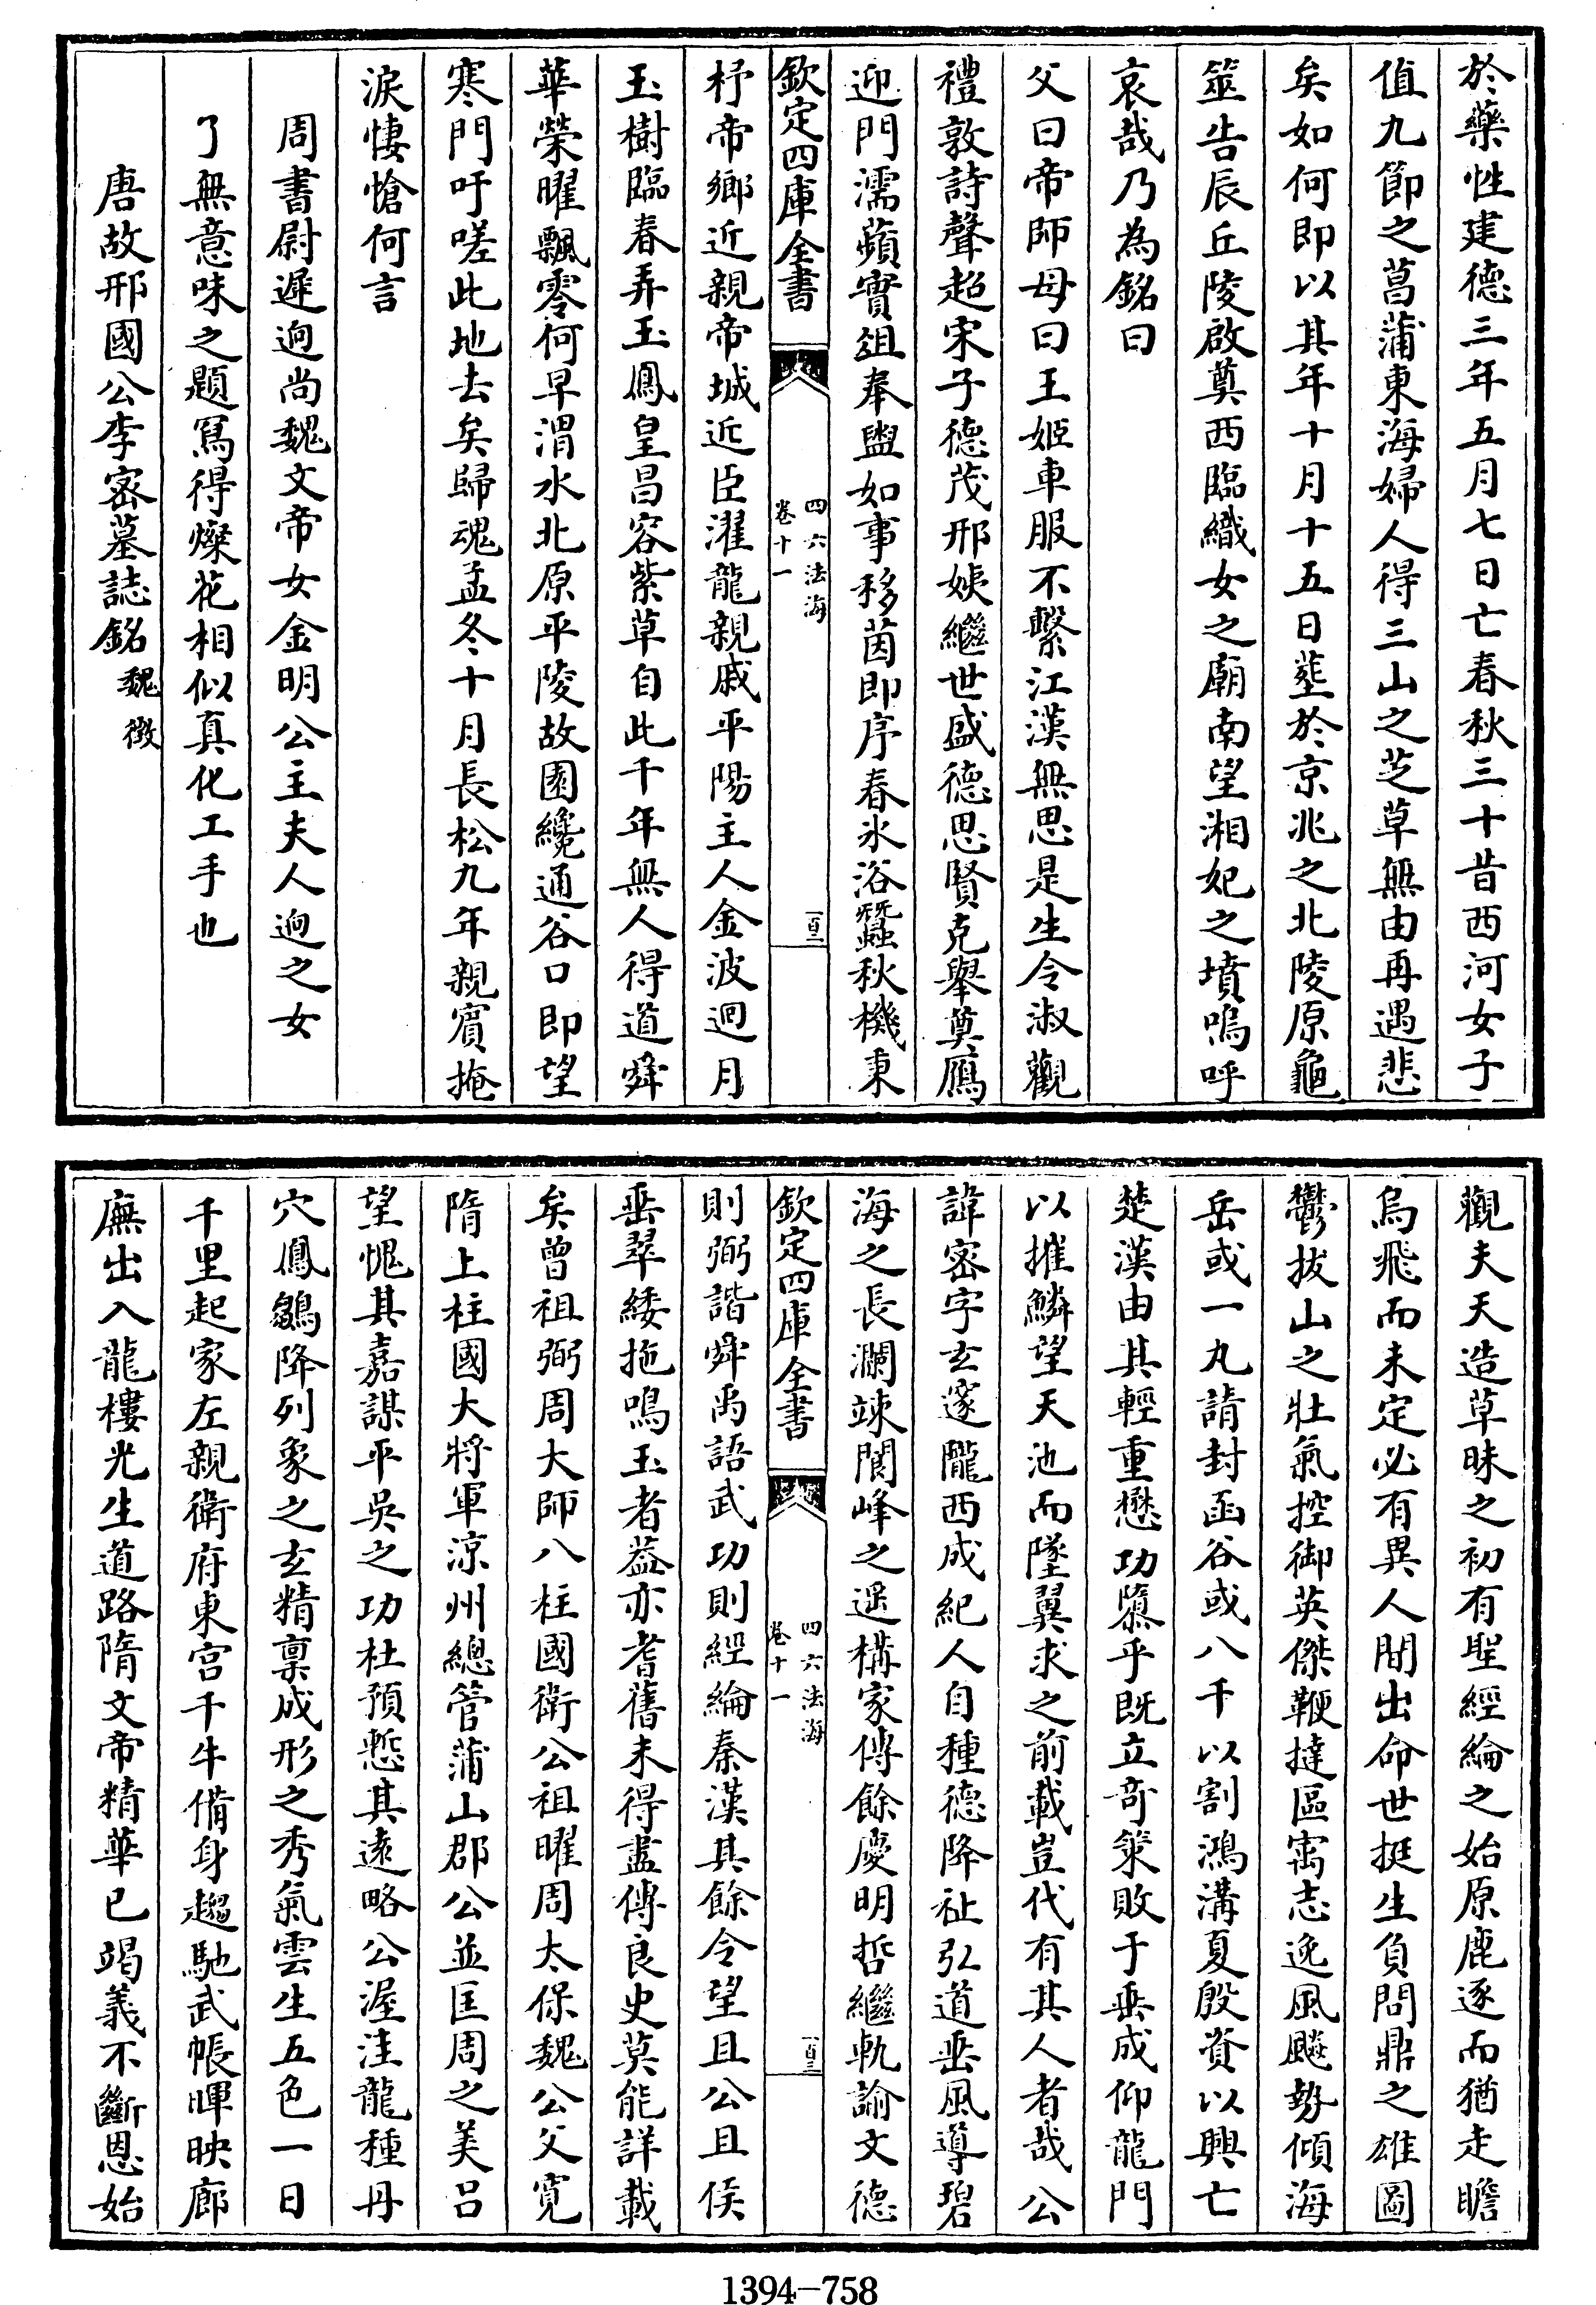 於藥性建德三年五月七日亡春秋三十昔西河女子
值九節之菖蒲東海婦人得三山之芝草無由再遇悲
矣如何即以其年十月十五日塟於京兆之北陵原龜
筮告辰丘陵啟奠西臨織女之廟南望湘妃之墳嗚呼
哀哉乃為銘曰
父曰帝師母曰王姬車服不繫江漢無思是生令淑觀
禮敦詩聲超宋子德茂邢姨繼世盛德思賢克舉奠鴈
迎門濡蘋實俎奉盥如事移茵即序春氷浴蠶秋機秉
欽定四庫全書
四六法海
卷十一
一百二
杼帝鄉近親帝城近臣濯龍親戚平陽主人金波迴月
玉樹臨春弄玉鳳皇昌容紫草自此千年無人得道舜
華榮曜飄零何早渭水北原平陵故園纔通谷口即望
寒門吁嗟此地去矣歸魂孟冬十月長松九年親賓掩
淚悽愴何言
周書尉遲逈尚魏文帝女金明公主夫人逈之女
了無意味之題寫得燦花相似真化工手也
唐故邢國公李密墓誌銘 魏徵
觀夫天造草昧之初有聖經綸之始原鹿逐而猶走瞻
烏飛而未定必有異人間出命世挺生負問鼎之雄圖
鬱拔山之壯氣控御英傑鞭撻區㝢志逸風飇勢傾海
岳或一丸請封函谷或八千以割鴻溝夏殷資以興亡
楚漢由其輕重懋功隳乎既立竒策敗于垂成仰龍門
以摧鱗望天池而墜翼求之前載豈代有其人者哉公
諱密字玄邃隴西成紀人自種德降祉弘道垂風導碧
海之長瀾竦閬峰之遥構家傳餘慶明哲繼軌諭文德
欽定四庫全書
四六法海
卷十一
一百三
則弼諧舜禹語武功則經綸秦漢其餘令望且公且侯
垂翠緌拖鳴玉者葢亦耆舊未得盡傳良史莫能詳載
矣曾祖弼周大師八柱國衛公祖曜周太保魏公父寛
隋上柱國大將軍涼州總管蒲山郡公並匡周之美吕
望愧其嘉謀平吳之功杜預慙其遠略公渥洼龍種丹
穴鳳鶵降列象之玄精禀成形之秀氣雲生五色一日
千里起家左親衛府東宫千牛備身趨馳武帳暉映廊
廡出入龍樓光生道路隋文帝精華已竭義不斷恩始
1394-758